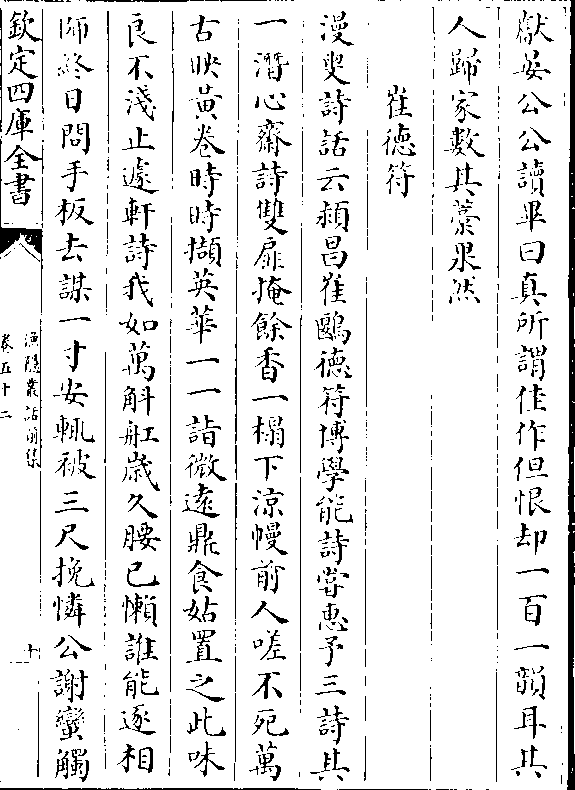 獻晏公公讀畢曰真所謂佳作但恨却一百一韻耳其
人歸家數其藁果然
崔德符
漫叟詩話云潁昌崔鷗德符博學能詩嘗惠予三詩其
一潛心齋詩雙扉掩餘香一榻下涼幔前人嗟不死萬
古映黃卷時時擷英華一一詣微遠鼎食姑置之此味
良不淺止遽軒詩我如萬斛舡歲久腰已懶誰能逐相
師終日問手板去謀一寸安輒被三尺挽憐公謝蠻觸
欽定四庫全書
漁隱叢話前集
卷五十二
十